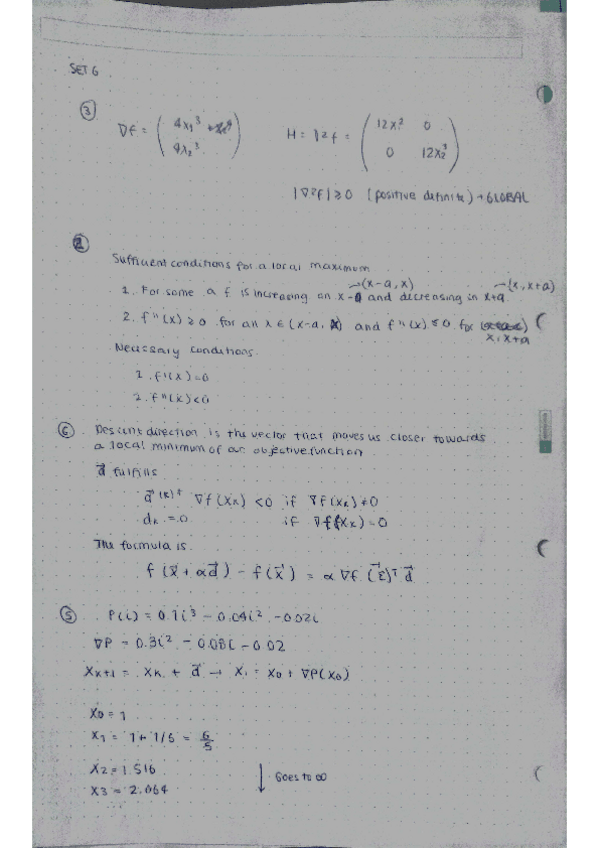 SET 6
③ ∇f = ( 4x₁³ 4x₂³ ) H = ∇²f = ( 12x₁² 0 0 12x₂² )
|∇²f| ≥ 0 (positive definite) → GLOBAL
②
Sufficient conditions for a local maximum
→(x-a, x) →(x, x+a)
1. For some a f is increasing on x-a and decreasing in x+a
2. f''(x) ≥ 0 for all x ∈ (x-a, x) and f''(x) ≤ 0 for
x, x+a
Necessary conditions
1. f'(x)=0
2. f''(x)<0
⑥ Descent direction is the vector that moves us closer towards
a local minimum of an objective function
d⃗ fulfills
d⃗⁽ᵏ⁾ᵀ ∇f(xₖ) < 0 if ∇f(xₖ) ≠ 0
dₖ = 0 if ∇f(xₖ) = 0
The formula is
f(x⃗ + αd⃗) - f(x⃗) = α ∇f(ε⃗)ᵀ d⃗
⑤ P(i) = 0.1i³ - 0.04i² - 0.02i
∇P = 0.3i² - 0.08i - 0.02
xₖ₊₁ = xₖ + d⃗ → x₁ = x₀ + ∇P(x₀)
x₀ = 1
x₁ = 1 + 1/5 = 6/5
x2 = 1.516
↓ Goes to ∞
x3 = 2.064
...